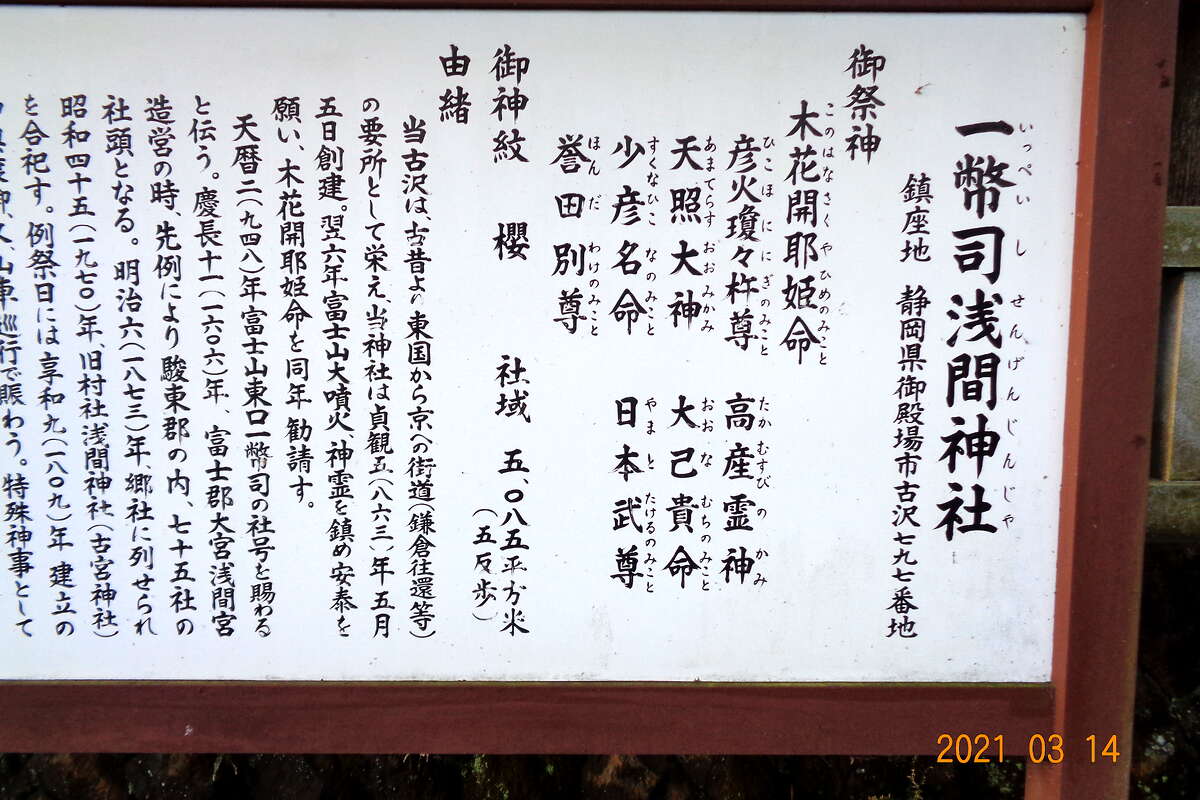 一幣司浅間神社
いっぺいしせんげんじんじゃ
鎮座地 静岡県御殿場市古沢七九七番地
御祭神
木花開耶姫命
このはなさくやひめのみこと
彦火瓊々杵尊 高産霊神
ひこほににぎのみこと たかむすびのかみ
天照大神 大己貴命
あまてらすおおみかみ おおなむちのみこと
少彦名命 日本武尊
すくなひこなのみこと やまとたけるのみこと
誉田別尊
ほんだわけのみこと
御神紋 櫻 社域 五、〇八五平方米
(五反歩)
由緒
当古沢は、古昔より東国から京への街道(鎌倉往還等)
の要所として栄え、当神社は貞観五(八六三)年五月
五日創建。翌六年富士山大噴火、神霊を鎮め安泰を
願い、木花開耶姫命を同年勧請す。
天暦二(九四八)年富士山東口一幣司の社号を賜わる
と伝う。慶長十一(一六〇六)年、富士郡大宮浅間宮
造営の時、先例により駿東郡の内、七十五社の
社頭となる。明治六(一八七三)年、郷社に列せられ
昭和四十五(一九七〇)年、旧村社浅間神社(古宮神社)
を合祀す。例祭日には享和九(一八〇九)年建立の
山車巡行で賑わう。特殊神事として
2021 03 14